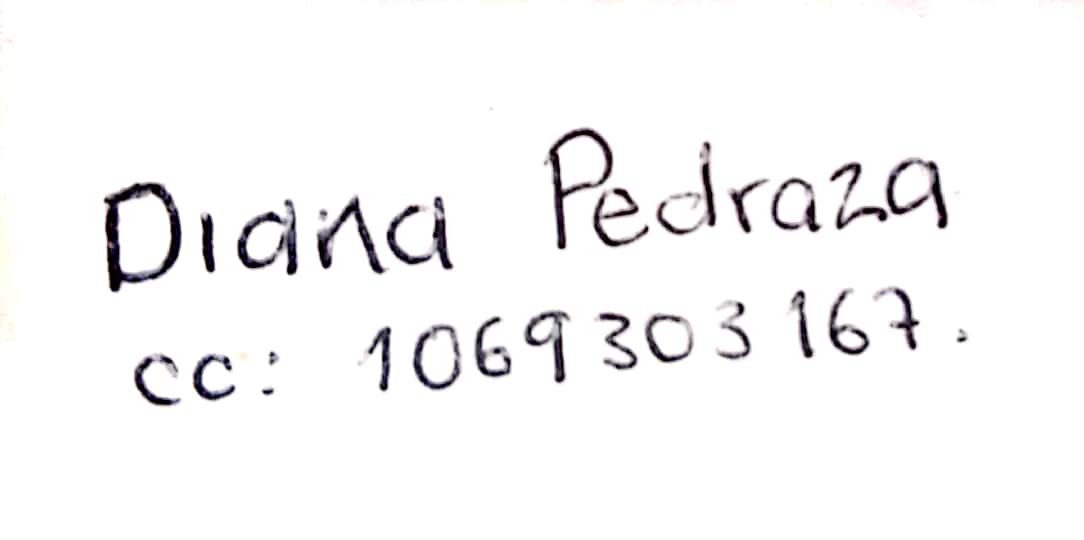 Diana Pedraza
cc: 1069303167.